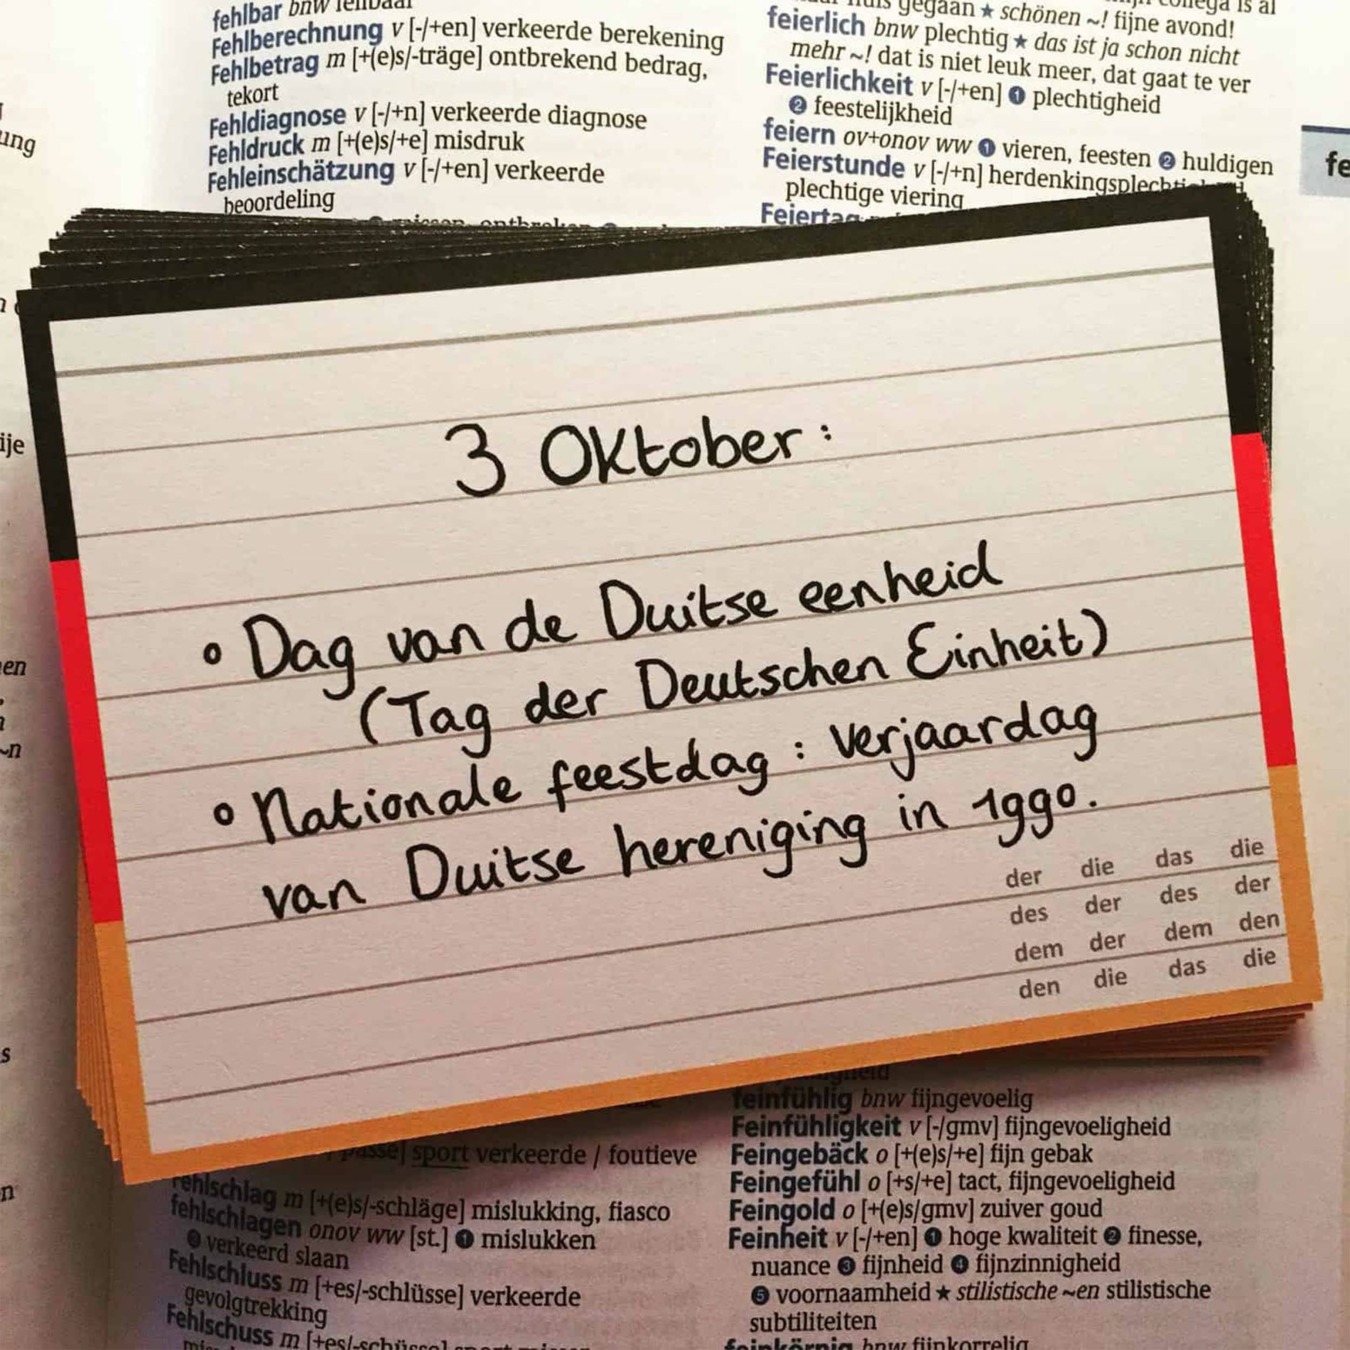 fehlbar bnw feilbaar
Fehlberechnung v [-/+en] verkeerde berekening
Fehlbetrag m [+(e)s/-träge] ontbrekend bedrag,
tekort
Fehldiagnose v [-/+n] verkeerde diagnose
Fehldruck m [+(e)s/+e] misdruk
Fehleinschätzung v [-/+en] verkeerde
beoordeling
gegaan ★ schönen ~! fijne avond!
feierlich bnw plechtig ★ das ist ja schon nicht
mehr ~! dat is niet leuk meer, dat gaat te ver
Feierlichkeit v [-/+en] ❶ plechtigheid
❷ feestelijkheid
feiern ov+onov ww ❶ vieren, feesten ❷ huldigen
Feierstunde v [-/+n] herdenkingsplechtigheid
plechtige viering
Feiertag
fe
ung
ije
3 Oktober:
• Dag van de Duitse eenheid
(Tag der Deutschen Einheit)
• Nationale feestdag: verjaardag
van Duitse hereniging in 1990.
der die das die
des der des der
dem der dem den
den die das die
en
~n
s
n
sport verkeerde / foutieve
Fehlschlag m [+(e)s/-schläge] mislukking, fiasco
fehlschlagen onov ww [st.] ❶ mislukken
❷ verkeerd slaan
Fehlschluss m [+es/-schlüsse] verkeerde
gevolgtrekking
Fehlschuss m [+es/-schüsse] sport
feinfühlig bnw fijngevoelig
Feinfühligkeit v [-/gmv] fijngevoeligheid
Feingebäck o [+(e)s/+e] fijn gebak
Feingefühl o [+s/+e] tact, fijngevoeligheid
Feingold o [+(e)s/gmv] zuiver goud
Feinheit v [-/+en] ❶ hoge kwaliteit ❷ finesse,
nuance ❸ fijnheid ❹ fijnzinnigheid
❺ voornaamheid ★ stilistische ~en stilistische
subtiliteiten
feinkörnig bnw fijnkorrelig